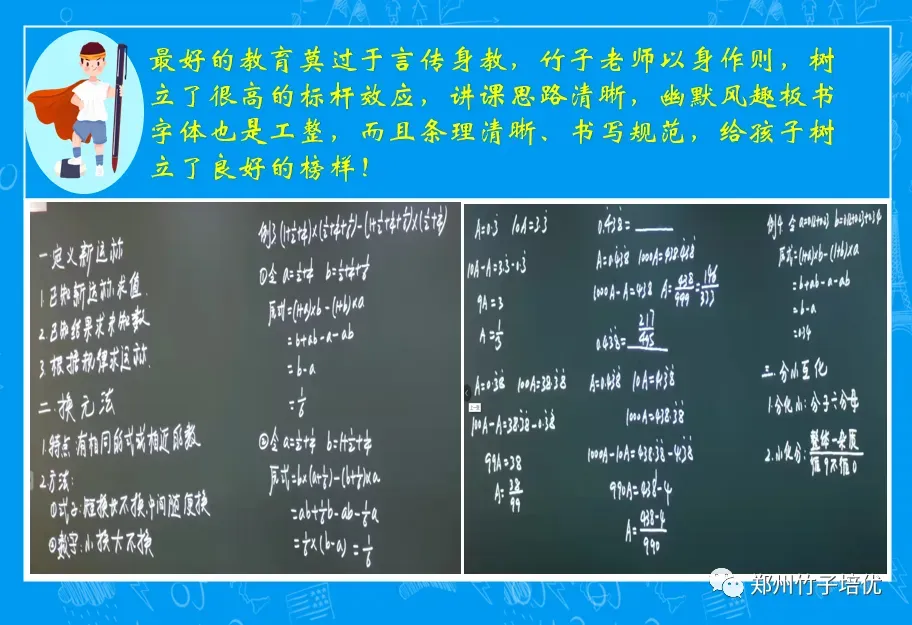 最好的教育莫过于言传身教，竹子老师以身作则，树
立了很高的标杆效应，讲课思路清晰，幽默风趣板书
字体也是工整，而且条理清晰、书写规范，给孩子树
立了良好的榜样！
一.定义新运算
1.已知新运算求值
2.已知结果求未知数
3.根据规律求运算
二.换元法
1.特点:有相同的式或相近的数
2.方法:
①式子:短换长不换,中间随便换
②数字:小换大不换
例3
①令 a=½+¼
原式=(1+a)×b-(1+b)×a
=b+ab-a-ab
=b-a
=1/6
②令 a=½+¼ b=1+½+¼
原式=b×(a+1/6)-(b+1/6)×a
=ab+1/6b-ab-1/6a
=1/6×(b-a)=1/6
A=0.3̇ 10A=3.3̇
10A-A=3.3̇-0.3̇
9A=3
A=1/3
A=0.3̇8̇ 100A=38.3̇8̇
100A-A=38.3̇8̇-0.3̇8̇
99A=38
A=38/99
0.4̇38̇=
A=0.4̇38̇ 1000A=438.4̇38̇
1000A-A=438 A=438/999=146/333
0.43̇8̇=217/495
A=0.43̇8̇ 10A=4.3̇8̇
1000A=438.3̇8̇
1000A-10A=438.3̇8̇-4.3̇8̇
990A=438-4
A=438-4/990
例4 令
原式=(1+a)×b-(1+b)×a
=b+ab-a-ab
=b-a
=0.34
三.分小互化
1.分化小:分子÷分母
2.小化分:
郑州竹子培优